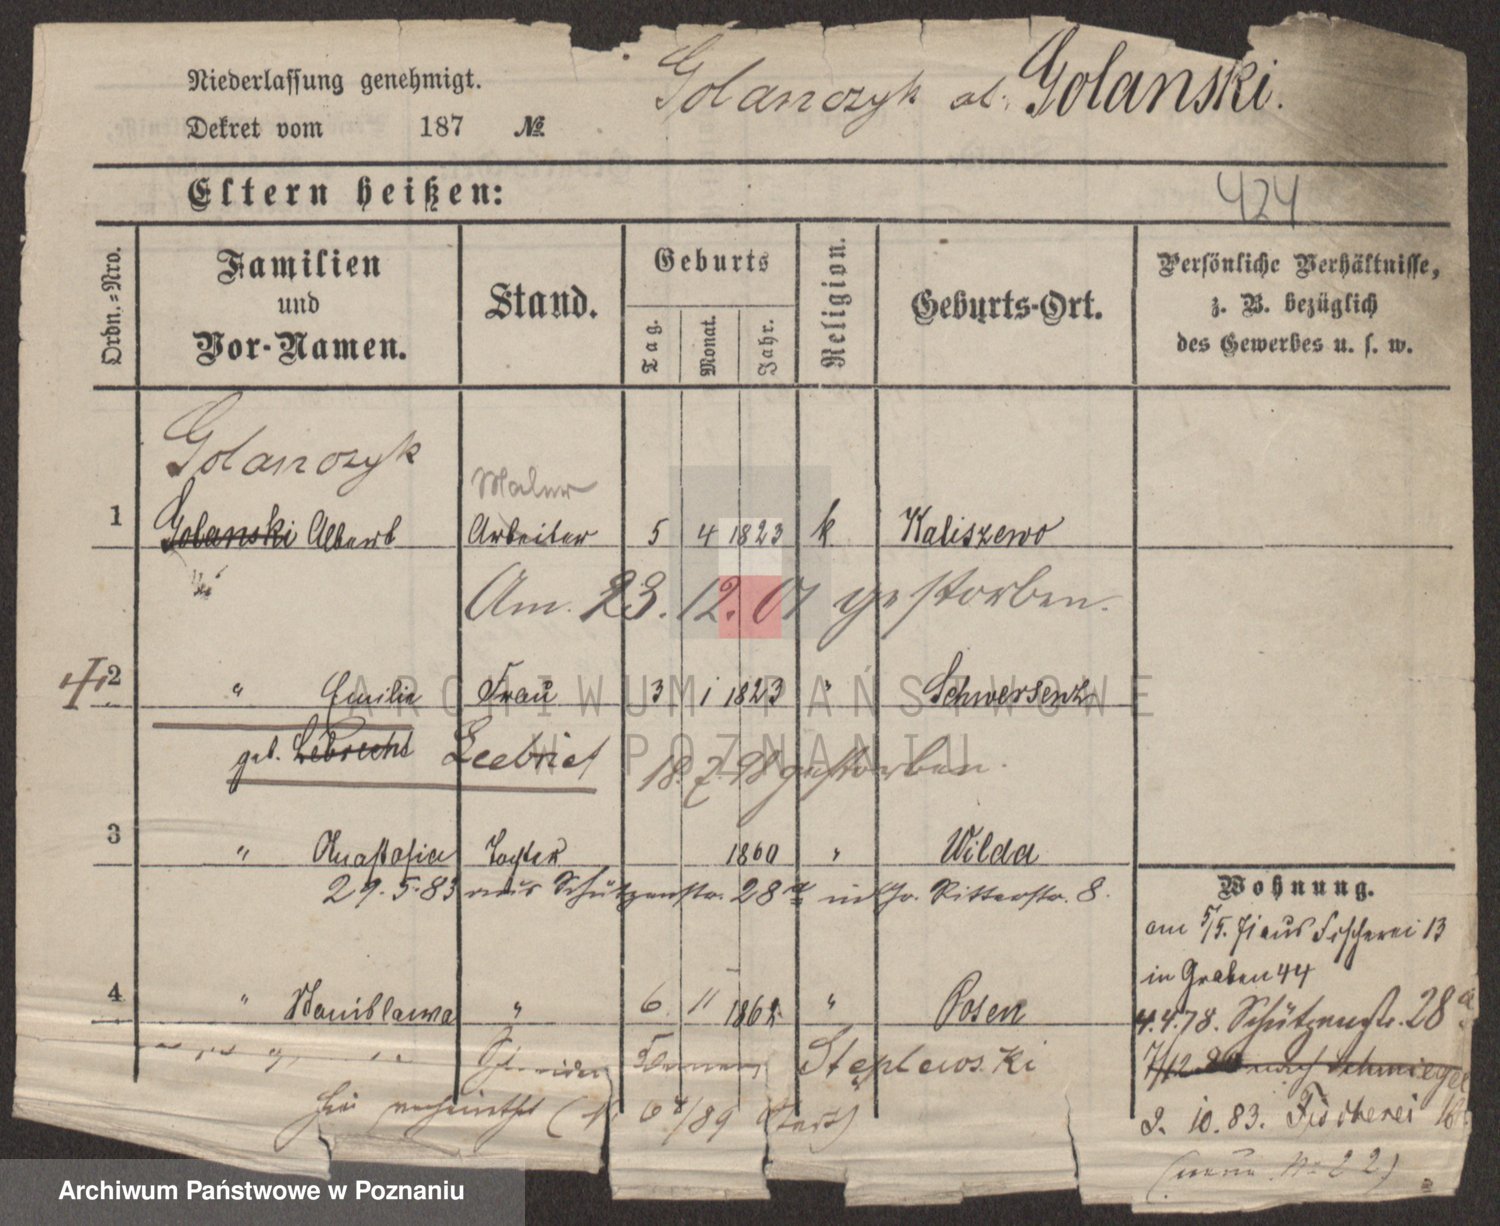 Niederlassung genehmigt.
Golanczyk al. Golanski.
Dekret vom 187 №
Eltern heißen:
424
Ordn.-Nro.
Familien und Vor-Namen.
Stand.
Geburts
Tag. Monat. Jahr.
Religion.
Geburts-Ort.
Persönliche Verhältnisse,
z. B. bezüglich
des Gewerbes u. s. w.
Golanczyk
Maler
1 Golanski Albert Arbeiter 5 4 1823 k. Kaliszewo
Am 23.12.01 gestorben.
2 " Emilie Frau 3 1 1823 " Schwersenz
geb. Lebrecht Leebrict 18.7.98 gestorben.
3 " Anastasia Tochter 1860 " Wilda
29.5.83 aus Schützenstr. 28a in Gr. Ritterstr. 8.
4 " Stanislawa " 6 11 1862 " Posen
Schneider Steplewski
(
/89
Wohnung.
am 5/5.71 aus Fischerei 13
in Graben 44
4.4.78. Schützenstr. 28a
7/12 80 nach Schmiegel
2.10.83. Fischerei 16
ARCHIWUM PAŃSTWOWE
W POZNANIU
Archiwum Państwowe w Poznaniu